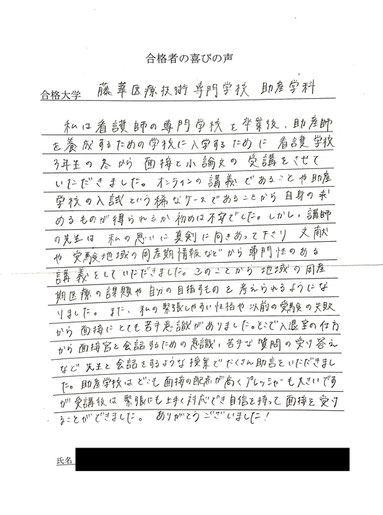 合格者の喜びの声
合格大学 藤華医療技術専門学校 助産学科
私は看護師の専門学校を卒業後、助産師
を養成するための学校に入学するために看護学校
3年生の冬から面接と小論文の受講をさせて
いただきました。オンラインの講義であることや助産
学校の入試という稀なケースであることから自身の求
めるものが得られるか初めは不安でした。しかし、講師
の先生は私の思いに真剣に向きあって下さり文献
や受験地域の周産期情報などから専門性のある
講義をしていただきました。このことから地域の周産
期医療の課題や自分の目指すものを考えられるようにな
りました。また、私の緊張しやすい性格や以前の受験の失敗
から面接にとても苦手意識がありました。そこで入退室の仕方
から面接官と会話するための意識、苦手な質問の受け答え
など先生と会話をするような授業でたくさん助言をいただきまし
た。助産学校はどこも面接の配点が高くプレッシャーも大きいです
が受講後は緊張にも上手く対応でき自信を持って面接を受け
ることができました。ありがとうございました!
氏名